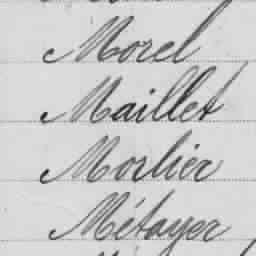 Morel
Maillet
Morlier
Métayer